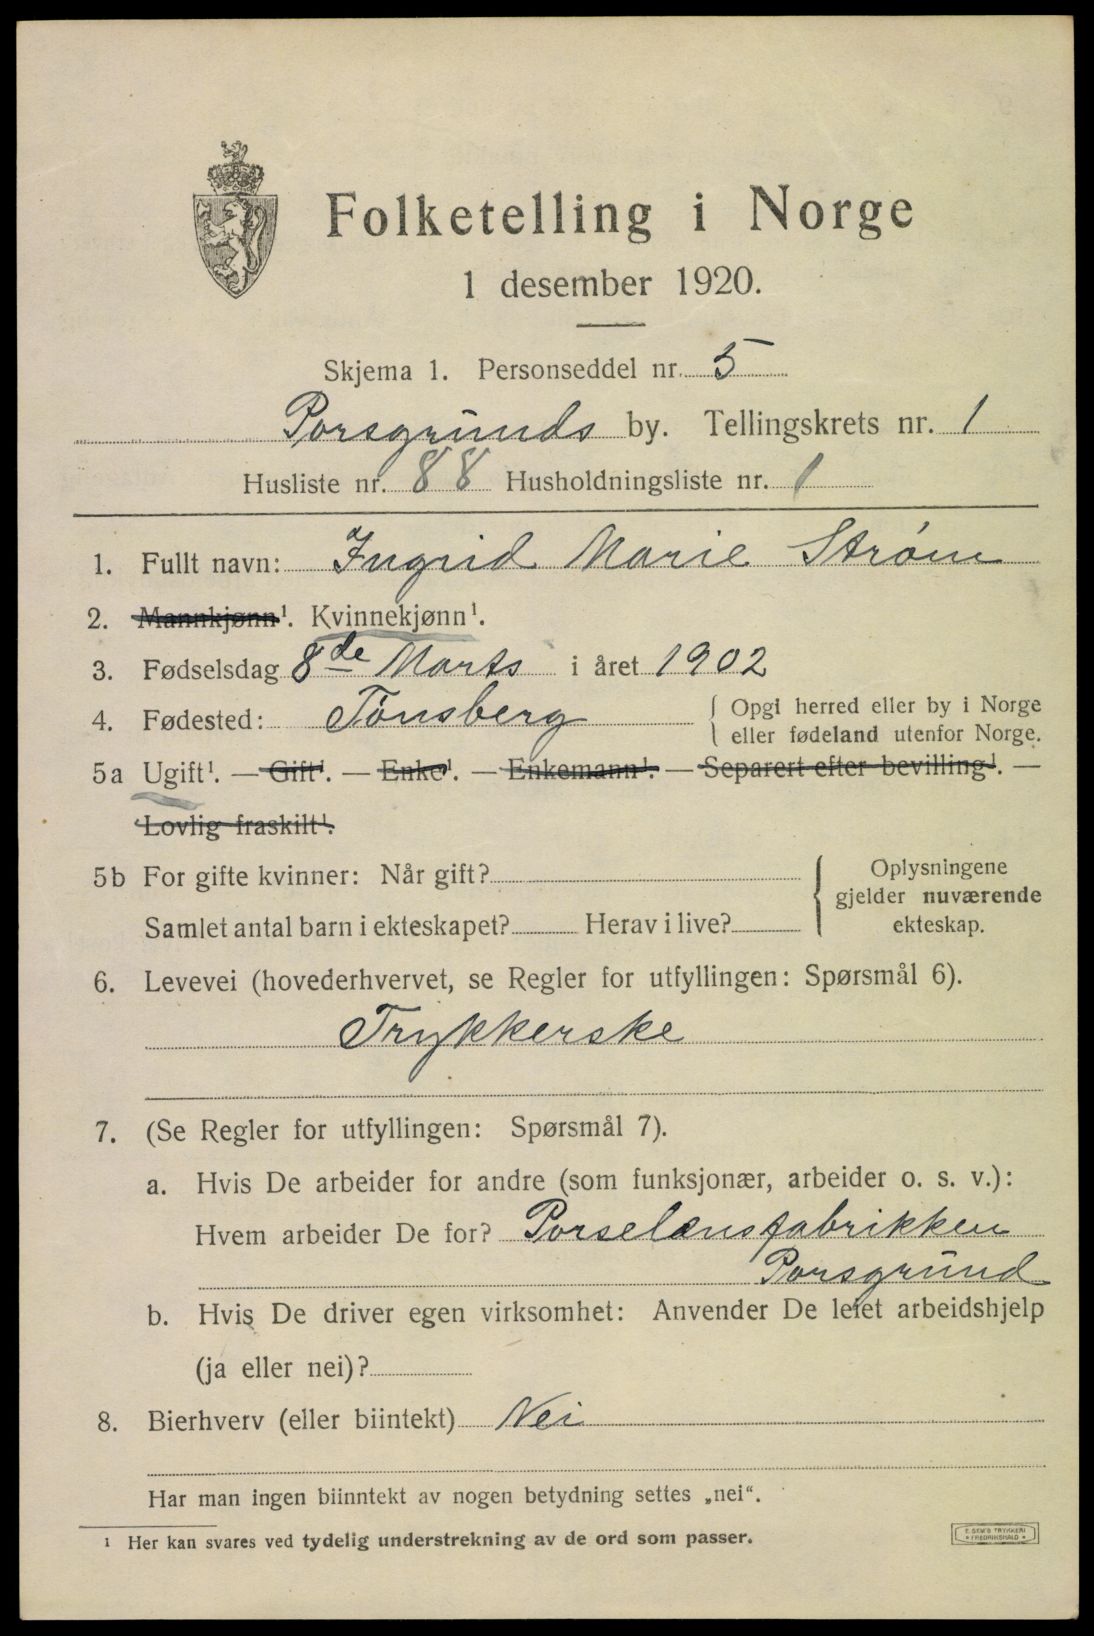 Folketelling i Norge
1 desember 1920.
Skjema 1. Personseddel nr. 5
Porsgrunds by. Tellingskrets nr. 1
Husliste nr. 88 Husholdningsliste nr. 1
1. Fullt navn: Ingrid Marie Strøm
2. Mannkjønn¹. Kvinnekjønn¹.
3. Fødselsdag 8de Marts i året 1902
4. Fødested: Tønsberg { Opgi herred eller by i Norge
eller fødeland utenfor Norge.
5a Ugift¹. — Gift¹. — Enke¹. — Enkemann¹. — Separert efter bevilling¹. —
Lovlig fraskilt¹.
5b For gifte kvinner: Når gift? { Oplysningene
gjelder nuværende
Samlet antal barn i ekteskapet? Herav i live? ekteskap.
6. Levevei (hovederhvervet, se Regler for utfyllingen: Spørsmål 6).
Trykkerske
7. (Se Regler for utfyllingen: Spørsmål 7).
a. Hvis De arbeider for andre (som funksjonær, arbeider o. s. v.):
Hvem arbeider De for? Porselænsfabrikken
Porsgrund
b. Hvis De driver egen virksomhet: Anvender De leiet arbeidshjelp
(ja eller nei)?
8. Bierhverv (eller biintekt) Nei
Har man ingen biinntekt av nogen betydning settes „nei“.
¹ Her kan svares ved tydelig understrekning av de ord som passer.
E. SEM'S TRYKKERI
* FREDRIKSHALD *